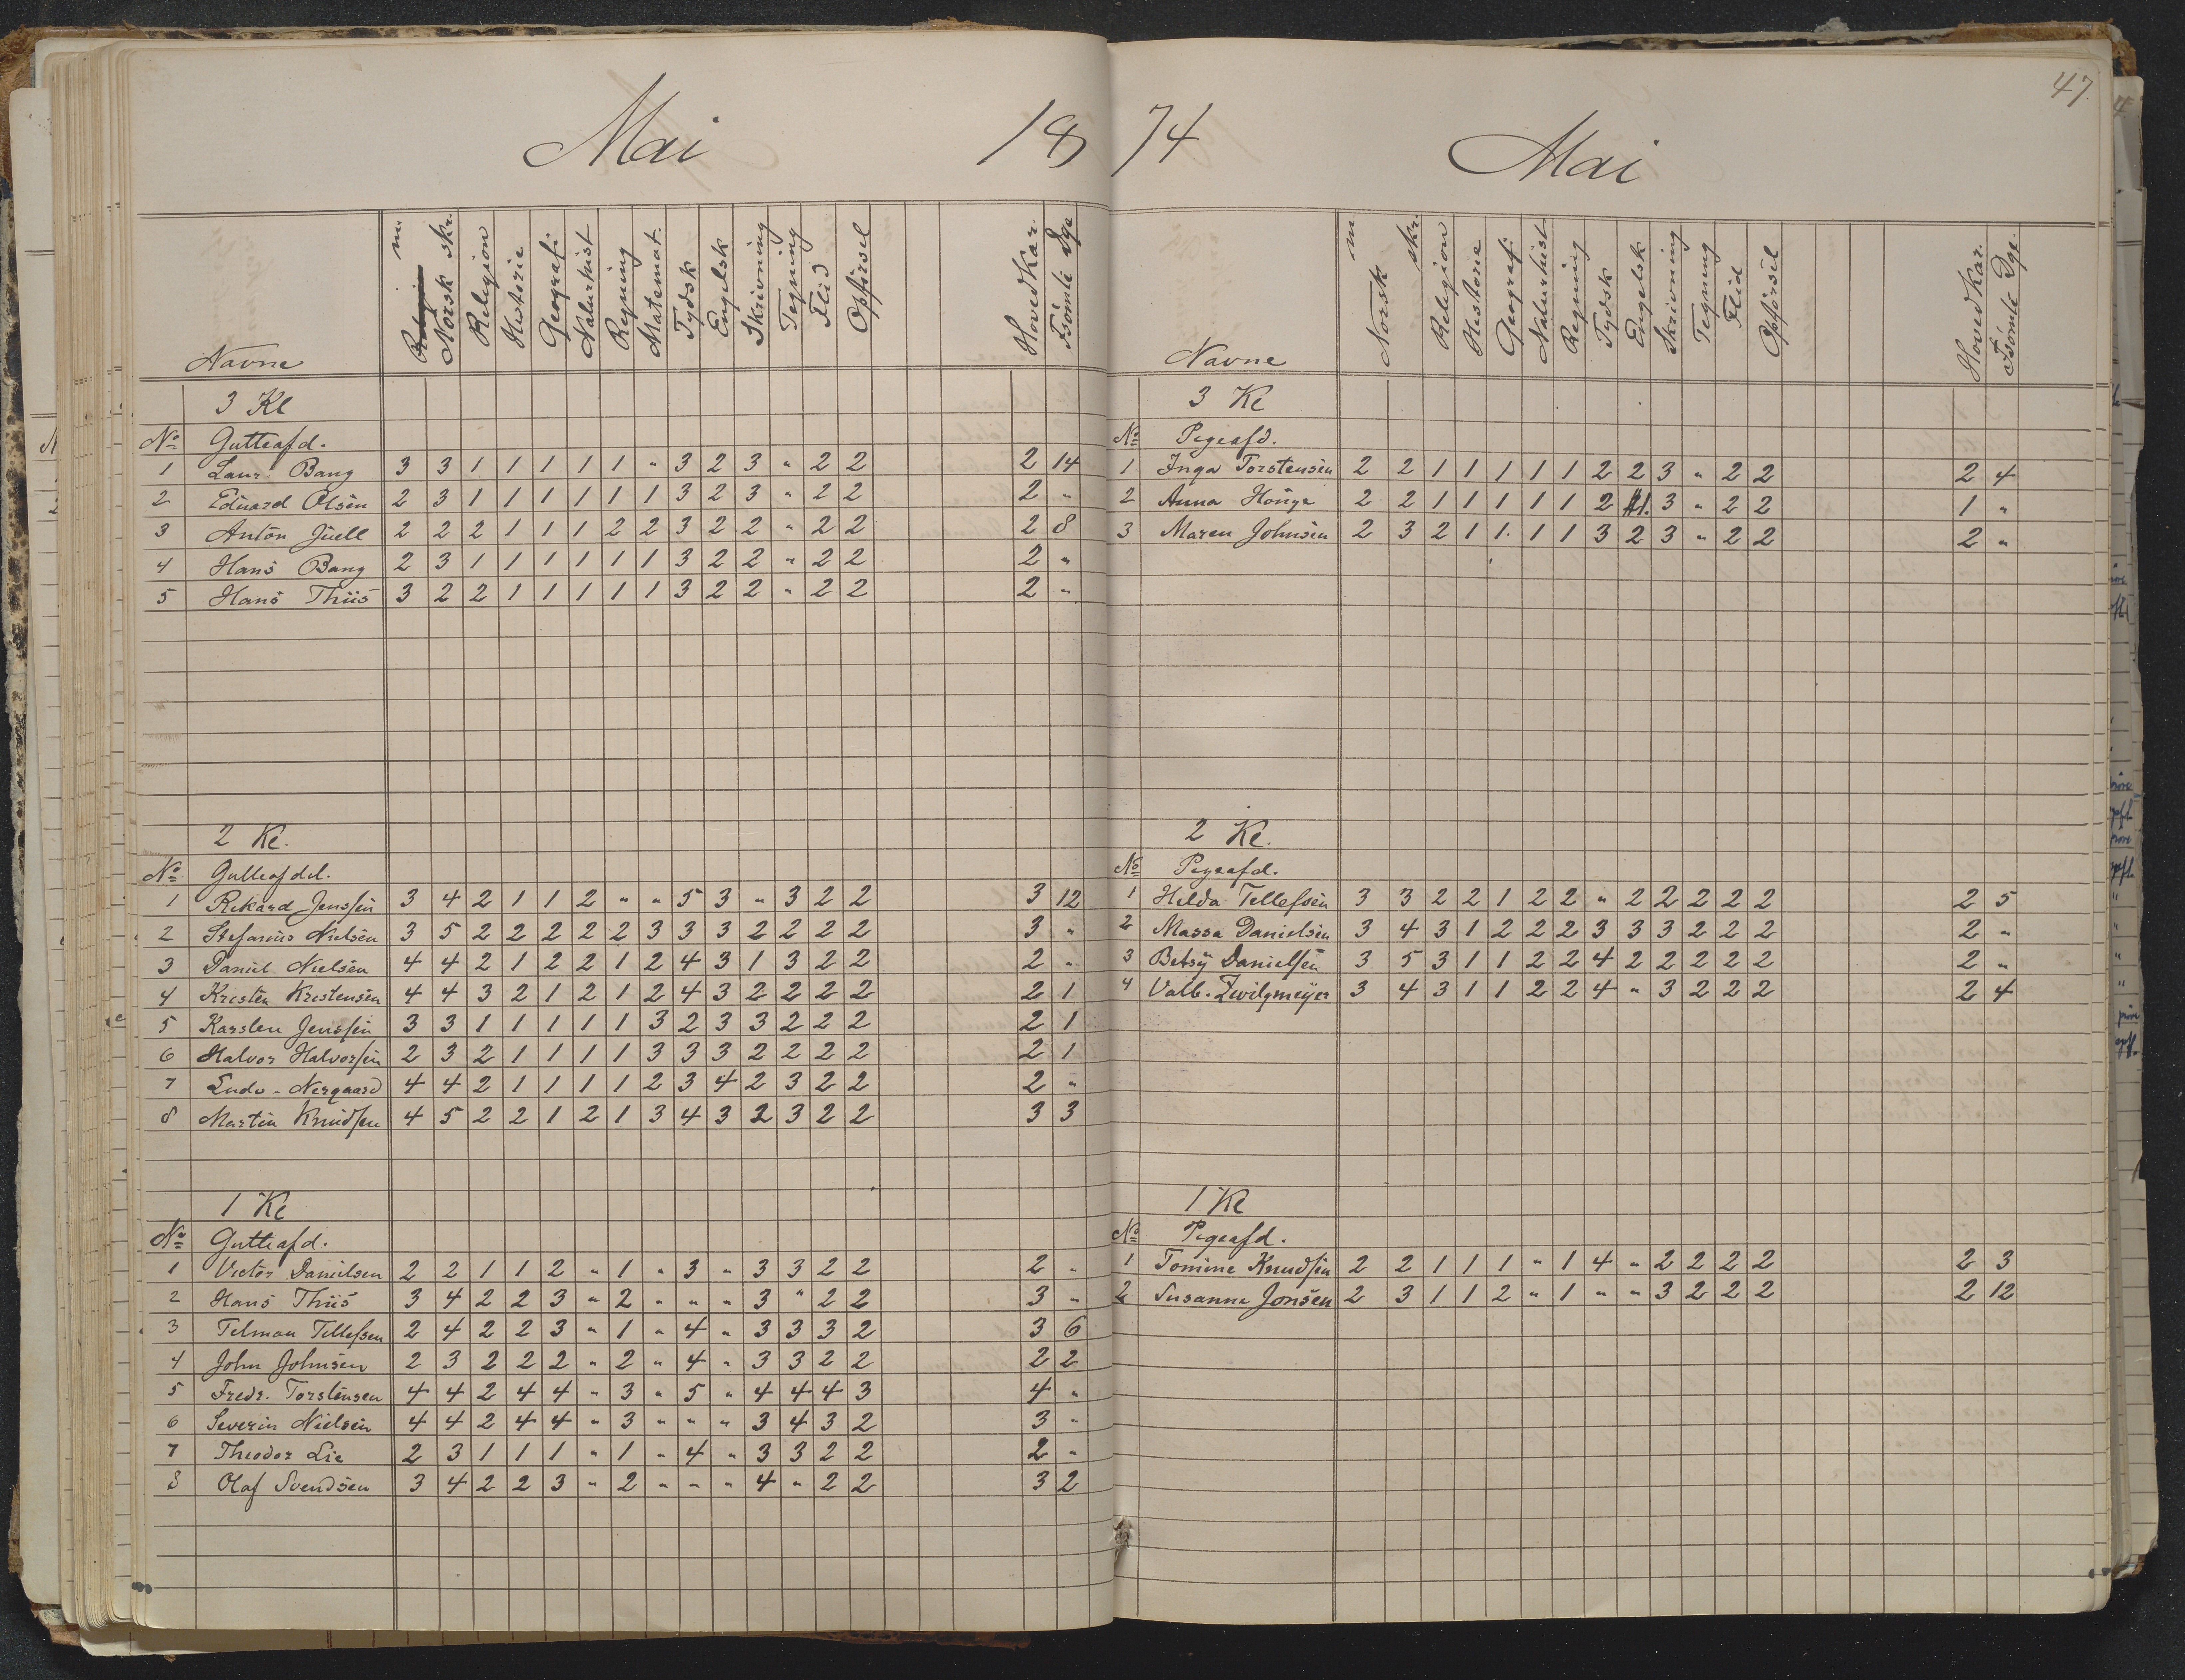 Mai 18
Navne m. Norsk skr. Religion Historie Geografi Naturhist Regning Matemat. Tydsk Engelsk Skrivning Tegning Flid Opførsel Hoved Kar. Fsömte Dge
3 Kl
No Gutteafd.
1 Laur. Bang 3 3 1 1 1 1 1 " 3 2 3 " 2 2 2 14
2 Eduard Olsen 2 3 1 1 1 1 1 1 3 2 3 " 2 2 2 "
3 Anton Juell 2 2 2 1 1 1 2 2 3 2 2 " 2 2 2 8
4 Hans Bang 2 3 1 1 1 1 1 1 3 2 2 " 2 2 2 "
5 Hans Thiis 3 2 2 1 1 1 1 1 3 2 2 " 2 2 2 "
2 Kl.
No Gutteafdel.
1 Rikard Jenssen 3 4 2 1 1 2 " " 5 3 " 3 2 2 3 12
2 Stefanius Nielsen 3 5 2 2 2 2 2 3 3 3 2 2 2 2 3 "
3 Daniel Nielsen 4 4 2 1 2 2 1 2 4 3 1 3 2 2 2 "
4 Kristen Kristensen 4 4 3 2 1 2 1 2 4 3 2 2 2 2 2 1
5 Karsten Jenssen 3 3 1 1 1 1 1 3 2 3 3 2 2 2 2 1
6 Halvor Halvorsen 2 3 2 1 1 1 1 3 3 3 2 2 2 2 2 1
7 Ludv. Nergaard 4 4 2 1 1 1 1 2 3 4 2 3 2 2 2 "
8 Martin Knudsen 4 5 2 2 1 2 1 3 4 3 2 3 2 2 3 3
1 Kl
No Gutteafd.
1 Victor Danielsen 2 2 1 1 2 " 1 " 3 " 3 3 2 2 2 "
2 Hans Thiis 3 4 2 2 3 " 2 " " " 3 " 2 2 3 "
3 Telman Tellefsen 2 4 2 2 3 " 1 " 4 " 3 3 3 2 3 6
4 John Johnsen 2 3 2 2 2 " 2 " 4 " 3 3 2 2 2 2
5 Fredr. Torstensen 4 4 2 4 4 " 3 " 5 " 4 4 4 3 4 "
6 Severin Nielsen 4 4 2 4 4 " 3 " " " 3 4 3 2 3 "
7 Theodor Lie 2 3 1 1 1 " 1 " 4 " 3 3 2 2 2 "
8 Olaf Svendsen 3 4 2 2 3 " 2 " " " 4 " 2 2 3 2
47.
74 Mai
Navne m Norsk skr. Religion Historie Geografi Naturhist Regning Tydsk Engelsk Skrivning Tegning Flid Opførsel Hoved Kar. Fsömte Dge.
3 Kl
No Pigeafd.
1 Inga Torstensen 2 2 1 1 1 1 1 2 2 3 " 2 2 2 4
2 Anna Honge 2 2 1 1 1 1 1 2 1. 3 " 2 2 1 "
3 Maren Johnsen 2 3 2 1 1. 1 1 3 2 3 " 2 2 2 "
2 Kl.
No Pigeafd.
1 Hilda Tellefsen 3 3 2 2 1 2 2 " 2 2 2 2 2 2 5
2 Massa Danielsen 3 4 3 1 2 2 2 3 3 3 2 2 2 2 "
3 Betsy Danielsen 3 5 3 1 1 2 2 4 2 2 2 2 2 2 "
4 Valb. Zwilgmeÿer 3 4 3 1 1 2 2 4 " 3 2 2 2 2 4
1 Kl
No Pigeafd.
1 Tomine Knudsen 2 2 1 1 1 " 1 4 " 2 2 2 2 2 3
2 Susanna Jonsen 2 3 1 1 2 " 1 " " 3 2 2 2 2 12